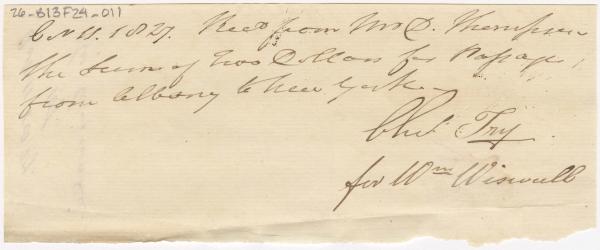 26-B13F24-011
11. 1827. Recd from Mr D. Thompson
the Sum of Two Dollars for Passage
from Albany to New York
Chs. Fry
for Wm Wiswall